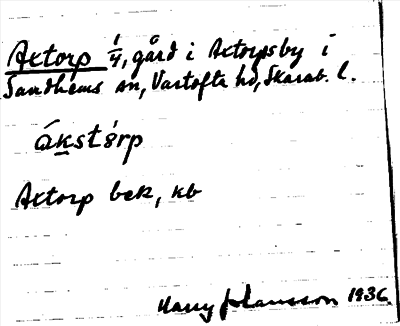 Axtorp 1/4, gård i Axtorpsby i
Sandhems sn, Vartofta hd, Skarab. l.
ákstòrp
Axtorp bek, kb
Harry Johansson 1936